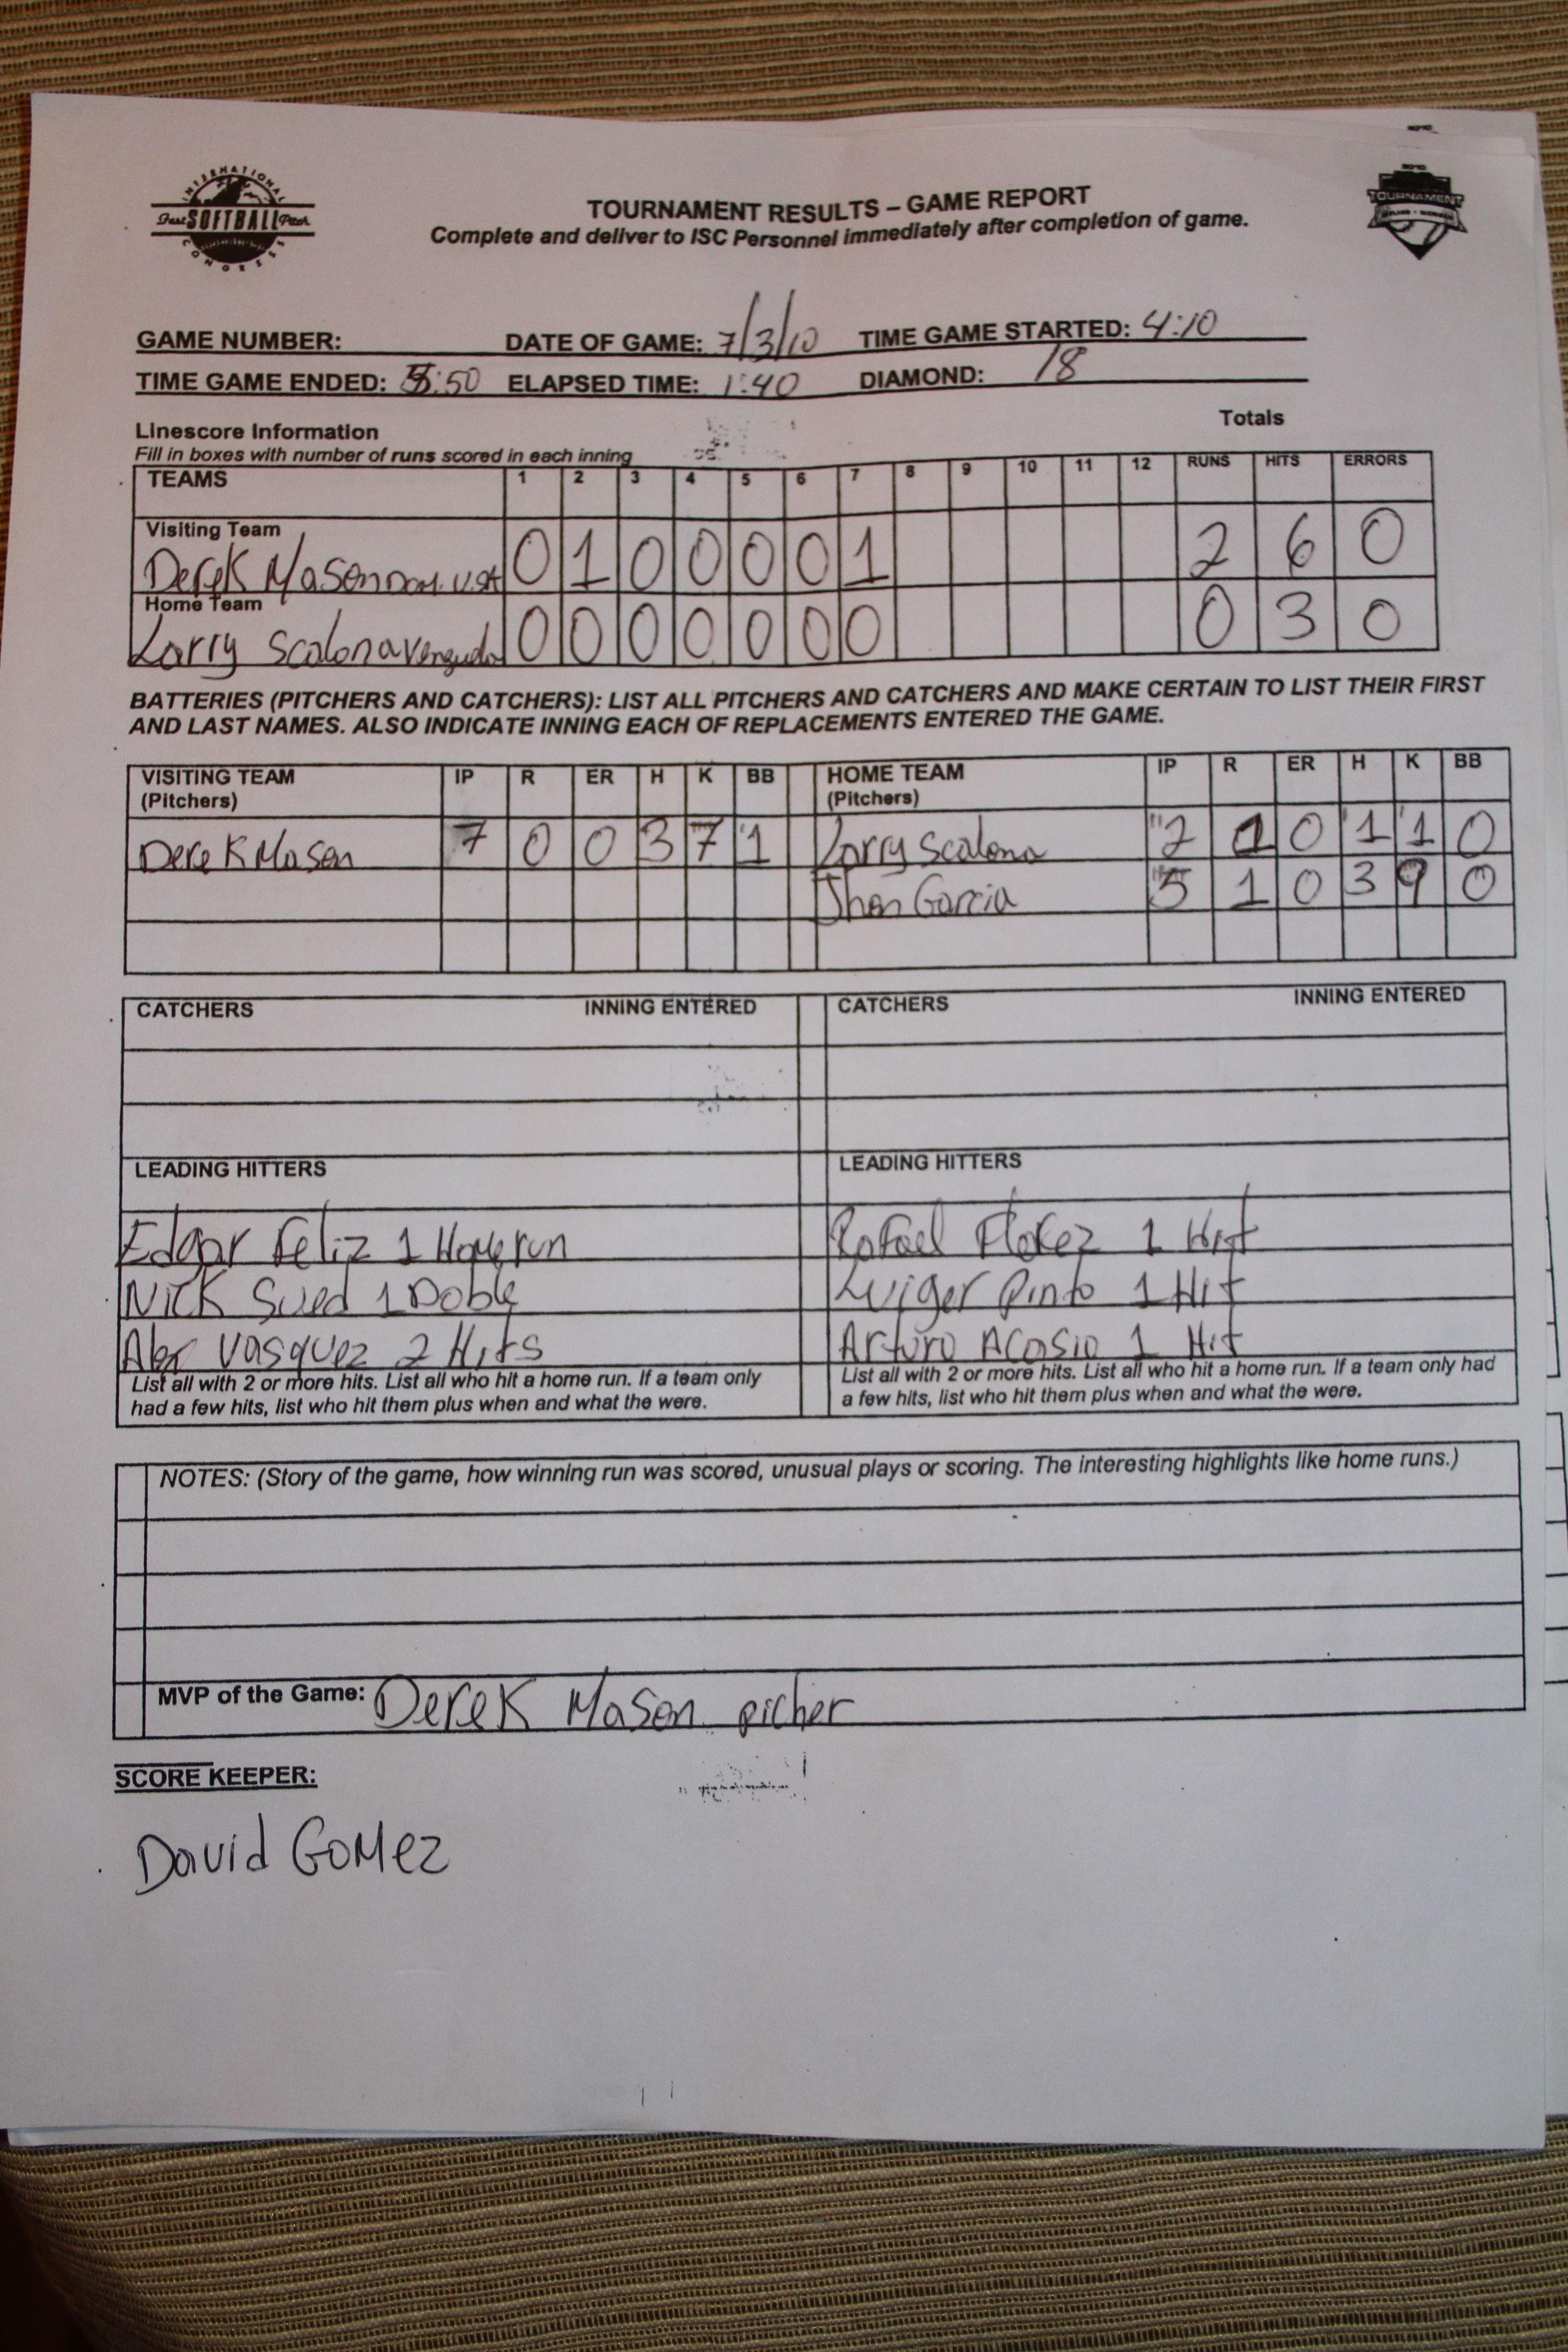 INTERNATIONAL
Fast SOFTBALL Pitch
CONGRESS
TOURNAMENT
TOURNAMENT RESULTS – GAME REPORT
Complete and deliver to ISC Personnel immediately after completion of game.
GAME NUMBER: DATE OF GAME: 7/3/10 TIME GAME STARTED: 4:10
TIME GAME ENDED: 5:50 ELAPSED TIME: 1:40 DIAMOND: 18
Linescore Information Totals
Fill in boxes with number of runs scored in each inning
TEAMS 1 2 3 4 5 6 7 8 9 10 11 12 RUNS HITS ERRORS
Visiting Team
Derek Mason DOM. U.SA 0 1 0 0 0 0 1 2 6 0
Home Team
Larry Scalona 0 0 0 0 0 0 0 0 3 0
BATTERIES (PITCHERS AND CATCHERS): LIST ALL PITCHERS AND CATCHERS AND MAKE CERTAIN TO LIST THEIR FIRST
AND LAST NAMES. ALSO INDICATE INNING EACH OF REPLACEMENTS ENTERED THE GAME.
VISITING TEAM IP R ER H K BB HOME TEAM IP R ER H K BB
(Pitchers) (Pitchers)
Derek Mason 7 0 0 3 7 1 Larry Scalona 2 1 0 1 1 0
Jhon Garcia 5 1 0 3 9 0
CATCHERS INNING ENTERED CATCHERS INNING ENTERED
LEADING HITTERS LEADING HITTERS
Edgar Feliz 1 Home run Rafael Florez 1 Hit
Nick Sued 1 Doble Luiger Pinto 1 Hit
Vasquez 2 Hits Arturo Acasio 1 Hit
List all with 2 or more hits. List all who hit a home run. If a team only List all with 2 or more hits. List all who hit a home run. If a team only had
had a few hits, list who hit them plus when and what the were. a few hits, list who hit them plus when and what the were.
NOTES: (Story of the game, how winning run was scored, unusual plays or scoring. The interesting highlights like home runs.)
MVP of the Game: Derek Mason picher
SCORE KEEPER:
David GoMez